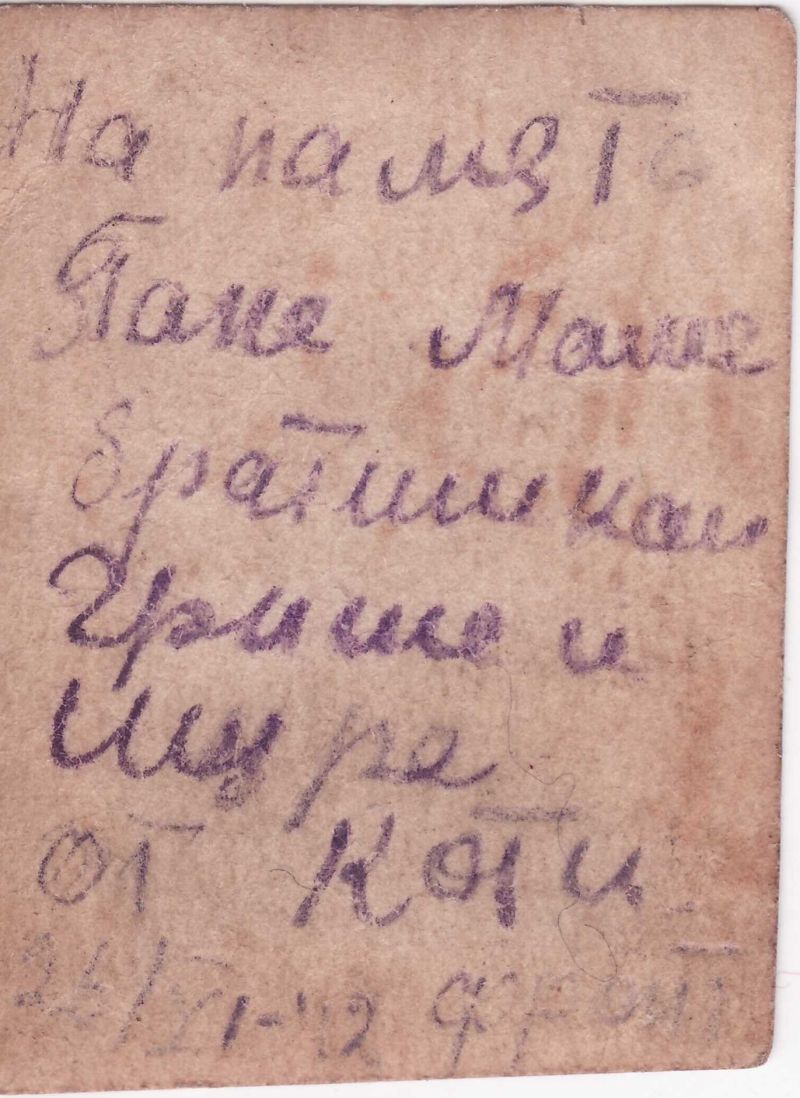 На память
Папе Маме
братишкам
Грише и
Шуре
от Коти
/VI-42 фронт